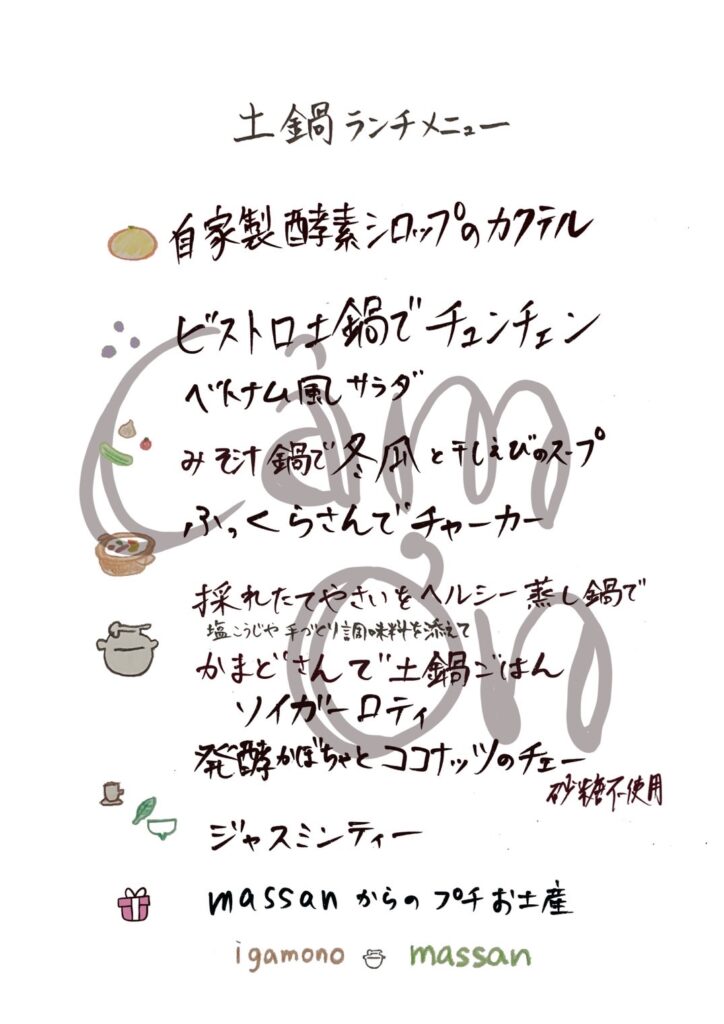 土鍋ランチメニュー
自家製酵素シロップのカクテル
ビストロ土鍋でチュンチェン
ベトナム風サラダ
みそ汁鍋で冬瓜と干しえびのスープ
ふっくらさんでチャーカー
採れたてやさいをヘルシー蒸し鍋で
塩こうじや手づくり調味料を添えて
かまどさんで土鍋ごはん
ソイガーロティ
発酵かぼちゃとココナッツのチェー
砂糖不使用
ジャスミンティー
massanからのプチお土産
igamono massan
Cám
Ơn